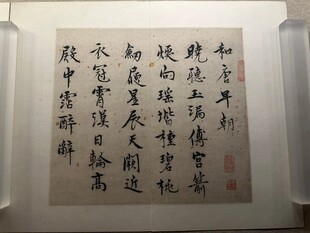 和唐早朝
曉聽玉漏傳宮箭
煖向瑤堦種碧桃
劍履星辰天闕近
衣冠霄漢日輪高
殿中霑醉辭